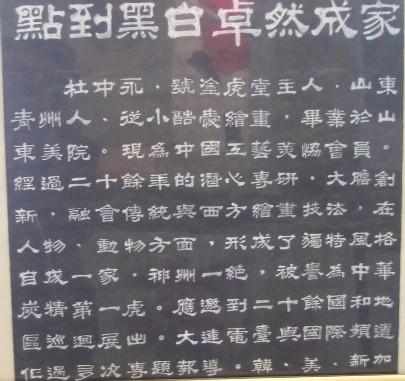 點到黑白卓然成家
杜中永，號塗虎堂主人，山東
青州人，從小酷愛繪畫，畢業於山
東美院。現為中國工藝美協會員。
經過二十餘年的潛心專研，大膽創
新，融會傳統與西方繪畫技法，在
人物、動物方面，形成了獨特風格
自成一家，神州一絕，被譽為中華
炭精第一虎。應邀到二十餘國和地
區巡迴展出。大連電臺與國際頻道
作過多次專題報導。韓、美、新加